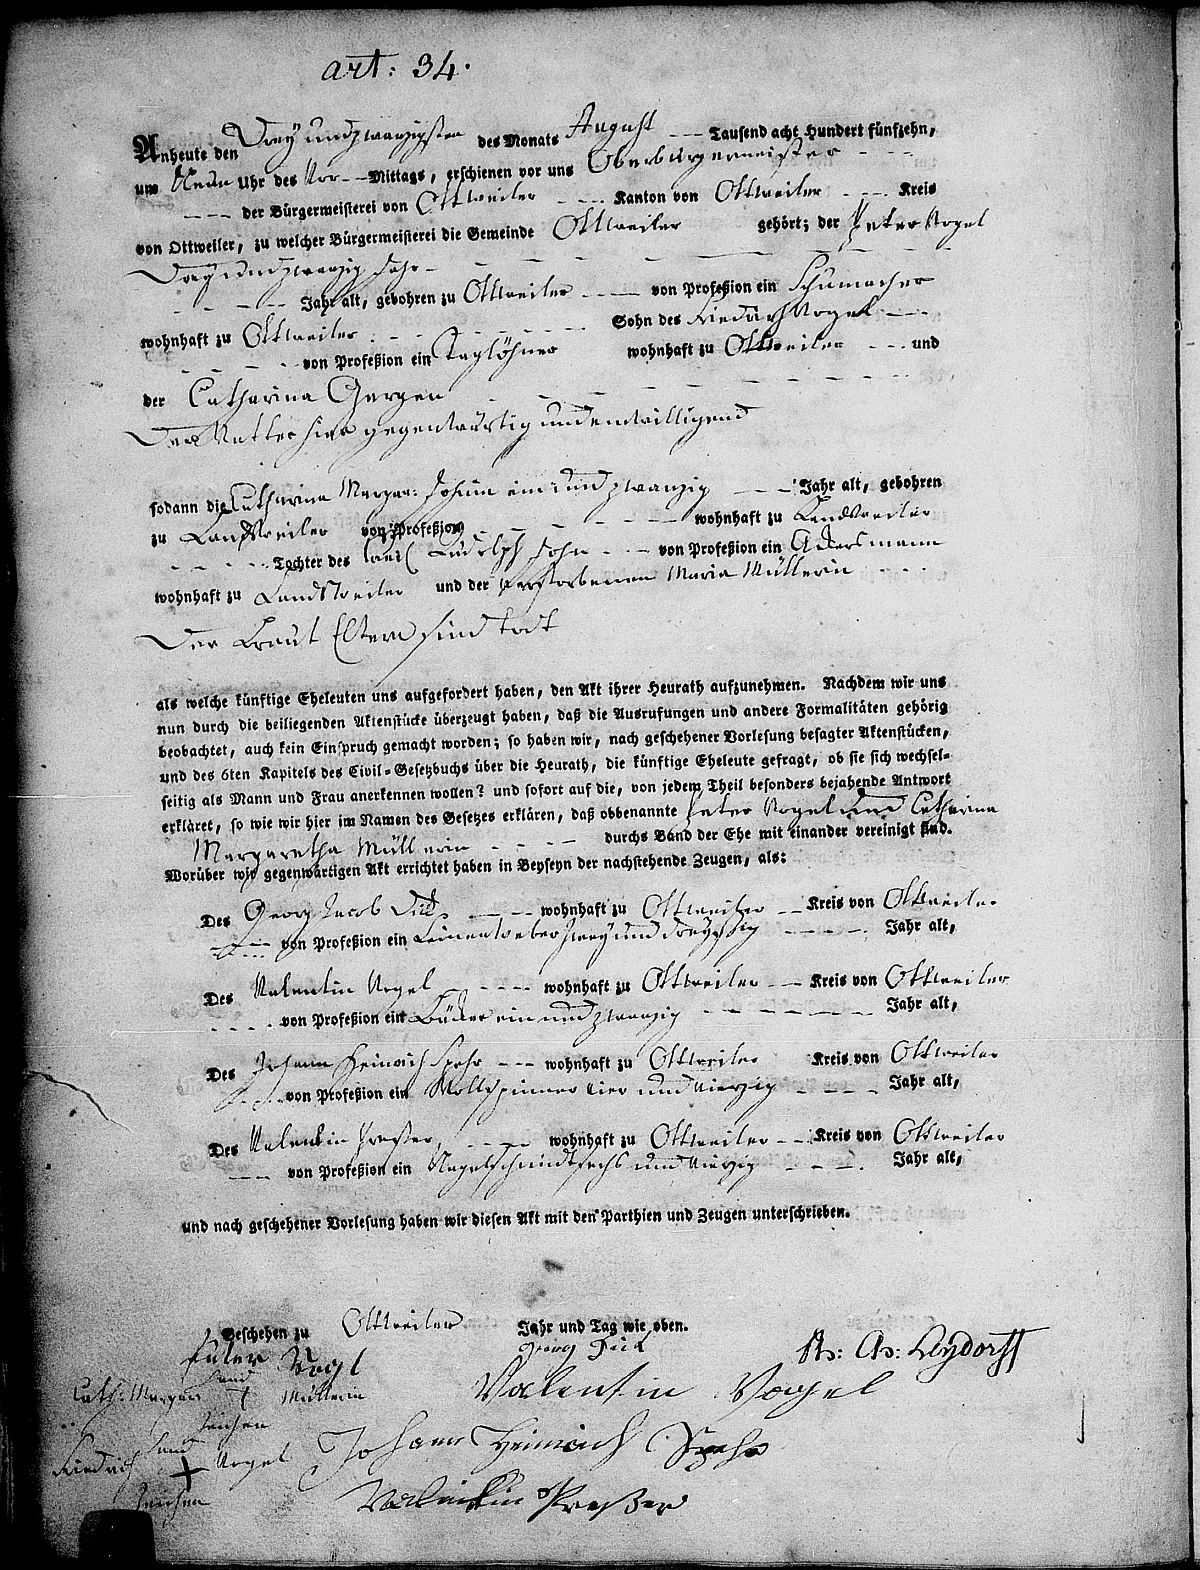 art: 34.
Anheute den Drey und zwanzigsten des Monats August --- Tausend acht Hundert fünfzehn,
um Neun Uhr des Vor -- Mittags, erschienen vor uns Oberbürgermeister ---
--- der Bürgermeisterei von Ottweiler --- Kanton von Ottweiler --- Kreis
von Ottweiler, zu welcher Bürgermeisterei die Gemeinde Ottweiler gehört; der Peter Vogel
Drey und zwanzig Jahr ---
--- Jahr alt, gebohren zu Ottweiler --- von Profeßion ein Schumacher
wohnhaft zu Ottweiler --- Sohn des Friedrich Vogel ---
--- von Profeßion ein Taglöhner wohnhaft zu Ottweiler --- und
der Catharina Gergen ---
Der Vatter hier gegenwärtig und einwilligend
sodann die Catharina Margar: John ein und zwanzig --- Jahr alt, gebohren
zu Landsweiler von Profeßion --- wohnhaft zu Landsweiler
--- Tochter des Carl Ludolph John --- von Profeßion ein Ackersmann
wohnhaft zu Landsweiler und der verstorbenen Maria Müllerin ---
Der Braut Eltern sind todt
als welche künftige Eheleuten uns aufgefordert haben, den Akt ihrer Heurath aufzunehmen. Nachdem wir uns
nun durch die beiliegenden Aktenstücke überzeugt haben, daß die Ausrufungen und andere Formalitäten gehörig
beobachtet, auch kein Einspruch gemacht worden; so haben wir, nach geschehener Vorlesung besagter Aktenstücken,
und des 6ten Kapitels des Civil-Gesetzbuchs über die Heurath, die künftige Eheleute gefragt, ob sie sich wechsel-
seitig als Mann und Frau anerkennen wollen? und sofort auf die, von jedem Theil besonders bejahende Antwort
erkläret, so wie wir hier im Namen des Gesetzes erklären, daß obbenannte Peter Vogel und Catharina
Margaretha Müllerin --- durchs Band der Ehe mit einander vereinigt sind.
Worüber wir gegenwärtigen Akt errichtet haben in Beyseyn der nachstehende Zeugen, als:
Des Georg Jacob Dick --- wohnhaft zu Ottweiler -- Kreis von Ottweiler
--- von Profeßion ein Leinenweber zwey und dreyßig --- Jahr alt,
Des Valentin Vogel --- wohnhaft zu Ottweiler -- Kreis von Ottweiler
--- von Profeßion ein Bäcker ein und zwanzig --- Jahr alt,
Des Johann Heinrich Spohr --- wohnhaft zu Ottweiler Kreis von Ottweiler
--- von Profeßion ein Wollspinner vier und vierzig --- Jahr alt,
Des Valentin Preßer, --- wohnhaft zu Ottweiler -- Kreis von Ottweiler
--- von Profeßion ein Nagelschmidt sechs und vierzig --- Jahr alt,
und nach geschehener Vorlesung haben wir diesen Akt mit den Parthien und Zeugen unterschrieben.
Geschehen zu Ottweiler Jahr und Tag wie oben.
Vogel Georg Dick
Hand
Cath: Margar + Müllerin Valentin Vogel
Zeichen
Hand
Friedrich + Vogel Johann Heinrich Spohr
Zeichen Valentin Preßer